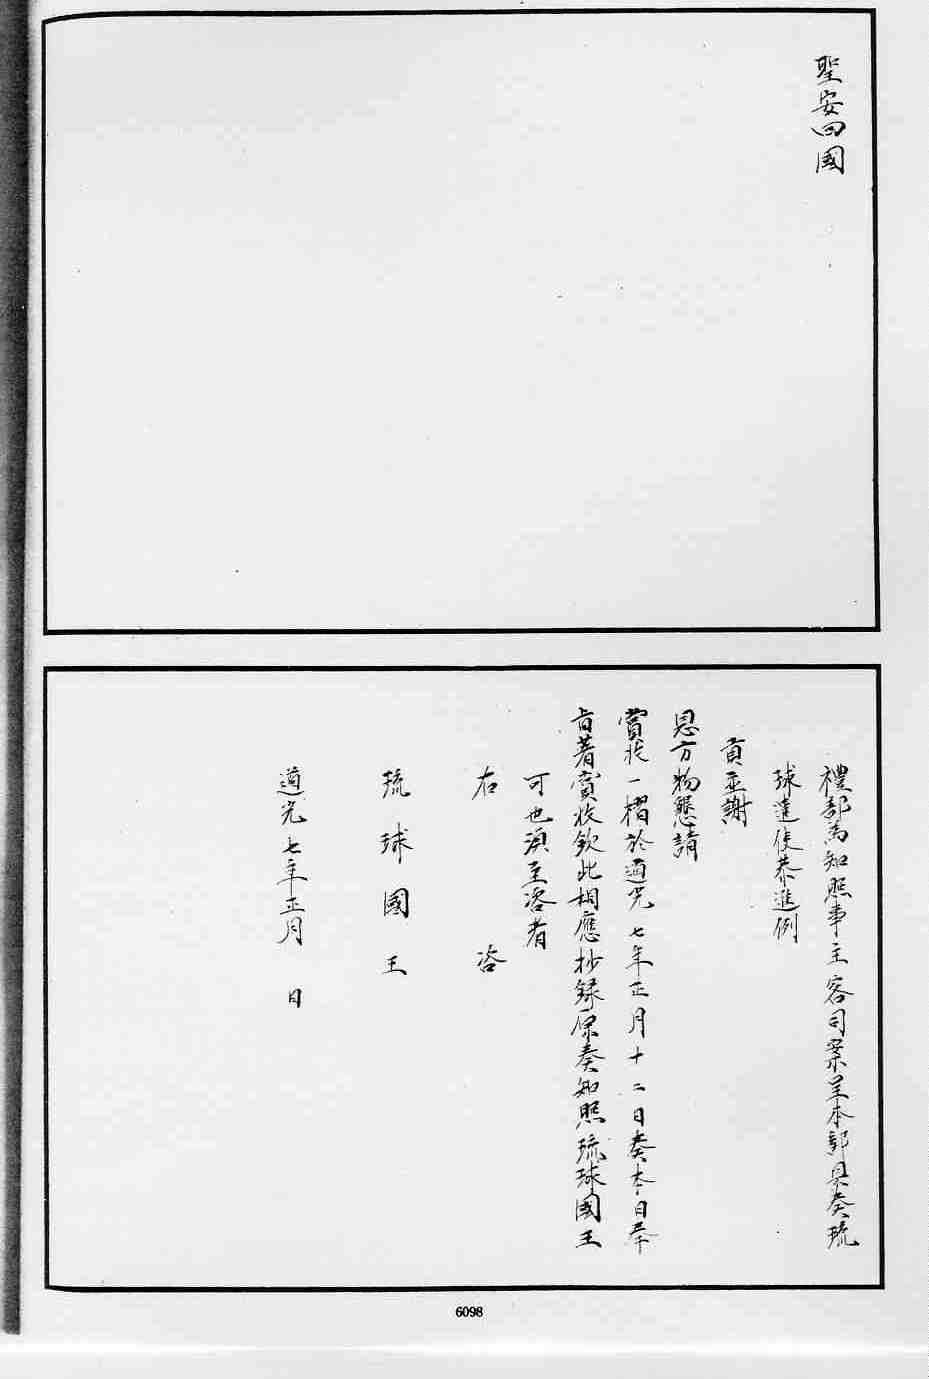 聖安回國
禮部為知照事主客司案呈本部具奏琉
球遣使恭進例
貢並謝
恩方物懇請
賞收一摺於道光七年正月十二日奏本日奉
旨著賞收欽此相應抄錄原奏知照琉球國王
可也須至咨者
右咨
琉球國王
道光七年正月 日
6098